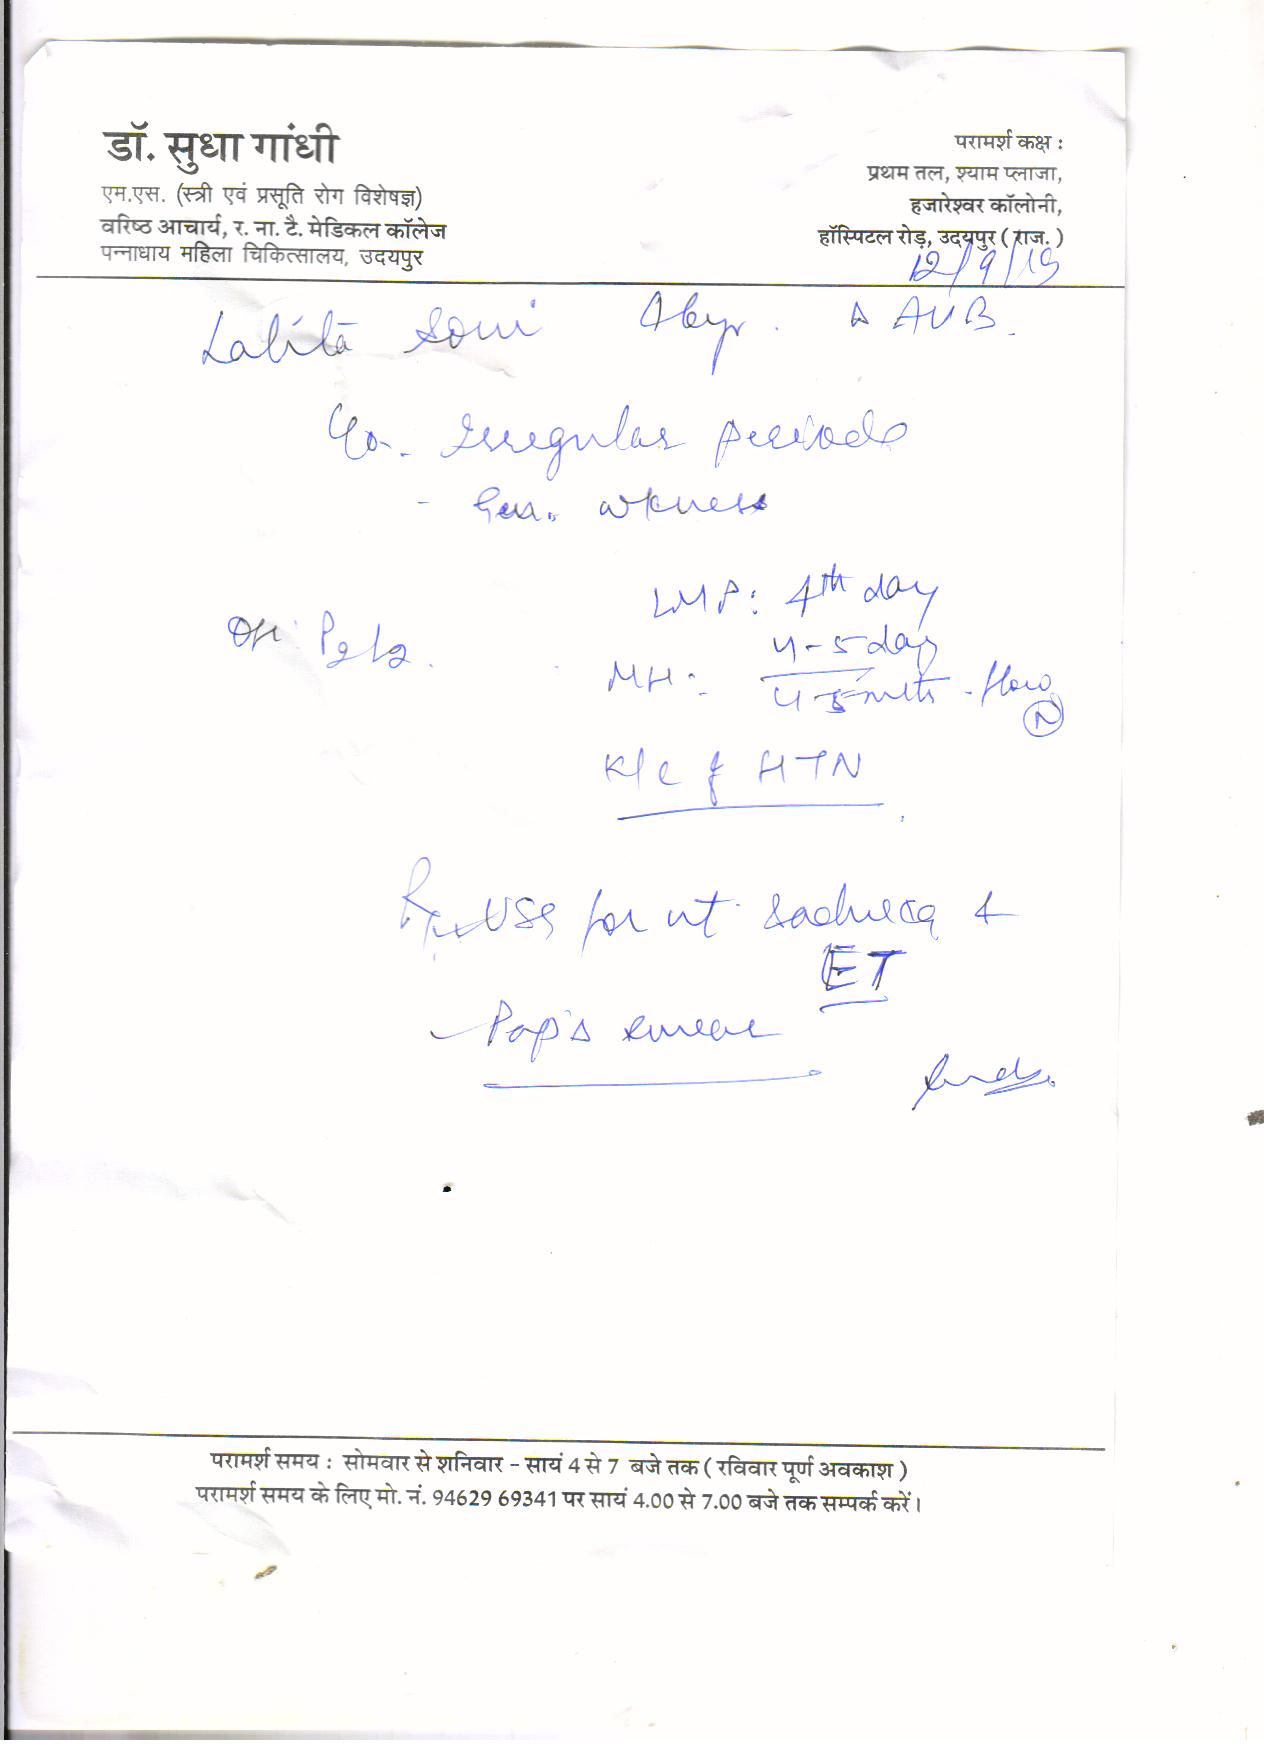 डॉ. सुधा गांधी
एम.एस. (स्त्री एवं प्रसूति रोग विशेषज्ञ)
वरिष्ठ आचार्य, र. ना. टै. मेडिकल कॉलेज
पन्नाधाय महिला चिकित्सालय, उदयपुर
परामर्श कक्ष :
प्रथम तल, श्याम प्लाजा,
हजारेश्वर कॉलोनी,
हॉस्पिटल रोड़, उदयपुर ( राज. )
12/9/19
Lalita Soni Δ AUB.
C/o. Irregular periods
- Gen. wkness
LMP: 4th day
OH: P2L2.
MH: 4-5 day
4-5 mths - flow
N
K/c of HTN
Rx USG for ut. &
ET
Pap's smear
परामर्श समय : सोमवार से शनिवार – सायं 4 से 7 बजे तक ( रविवार पूर्ण अवकाश )
परामर्श समय के लिए मो. नं. 94629 69341 पर सायं 4.00 से 7.00 बजे तक सम्पर्क करें।